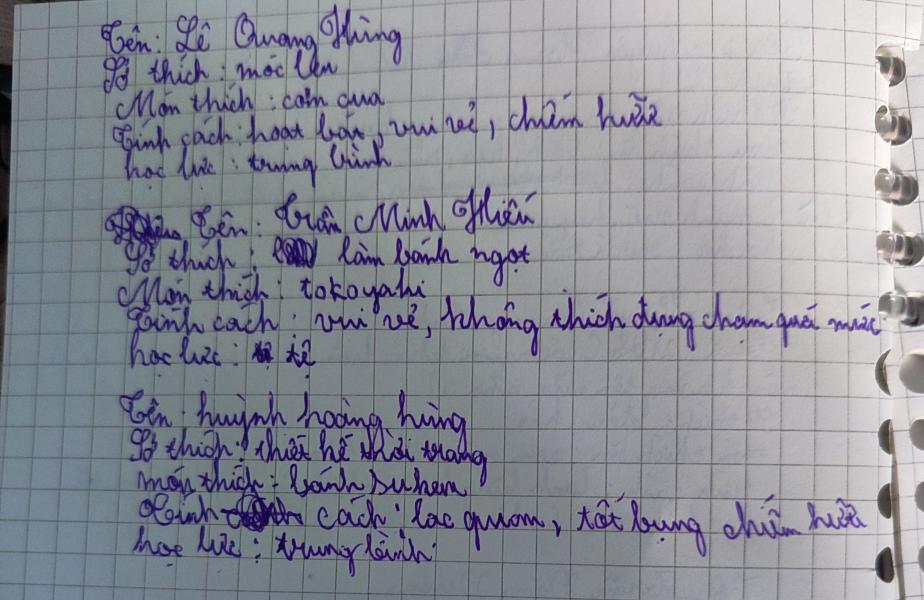 Tên: Lê Quang Hùng
Sở thích: móc len
Món thích: cơm cua
Tính cách: hoạt bát, vui vẻ, chiếm hữu
học lực: trung bình
Tên: Trần Minh Hiếu
Sở thích: làm bánh ngọt
Món thích: tokoyaki
Tính cách: vui vẻ, không thích đụng chạm quá mức
học lực: tệ
Tên: huỳnh hoàng hùng
Sở thích: thiết kế thời trang
món thích: bánh su kem
Tính cách: lạc quan, tốt bụng chiếm hữu
học lực: trung bình